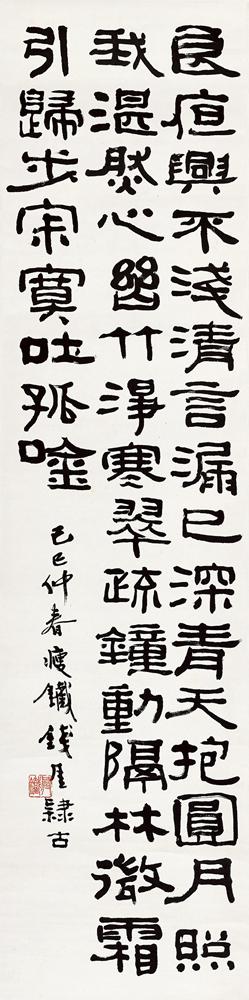 良宵興不淺清言漏已深青天抱圓月照
我湛然心幽竹淨寒翠疏鐘動隔林微霜
引歸步寂寞吐孤唫
己巳仲春瘦鐵錢厓隸古